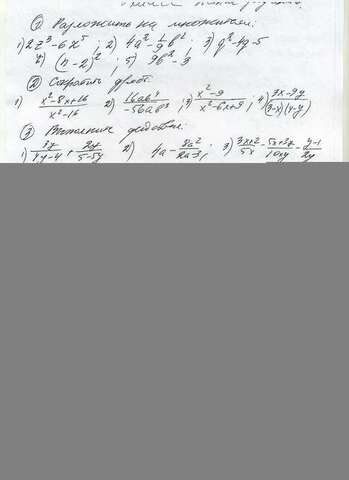 ① Разложить на множители:
1) 2z³-6z⁵; 2) 4a²-1/9b²; 3) q²-4q-5
4) (n-2)²; 5) 9b²-3
② Сократить дроби:
1) x²-8x+16/x²-16 2) 16ab⁴/-56ab⁸; 3) x²-9/x²-6x+9; 4) 9x-9y/(y-x)(x-y)
③ Выполнить действия:
2) 4a-8a²/2a-3; 3) 3x+2/5x-5x+3y/10xy-y-1/2y